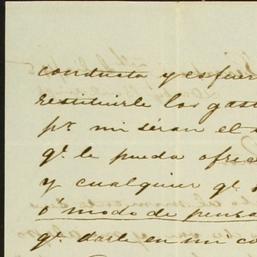 conducta y esfuer
restituirle los gast
pr. mi séran el
qe. le pueda ofre
y cualquier qe.
o modo de pensa
qe. darle en mi co